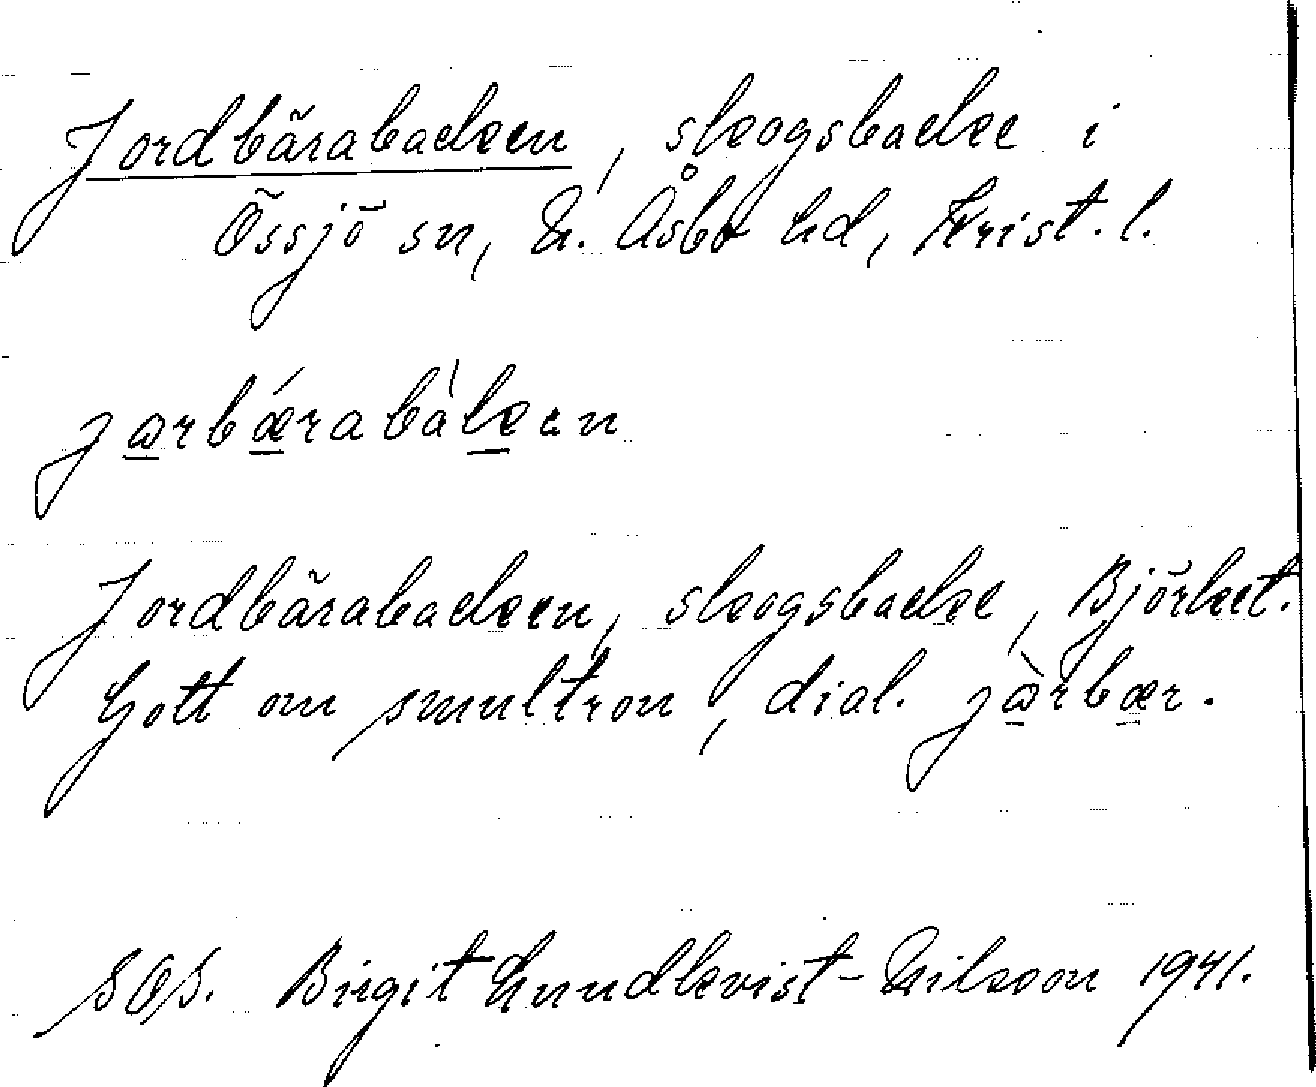 Jordbärabacken, skogsbacke i
Össjö sn, N. Åsbo hd, Krist. l.
jarbǽrabàken
Jordbärabacken, skogsbacke, Björket.
Gott om smultron, dial. jàrbær.
Birgit Lundkvist-Nilsson 1941.